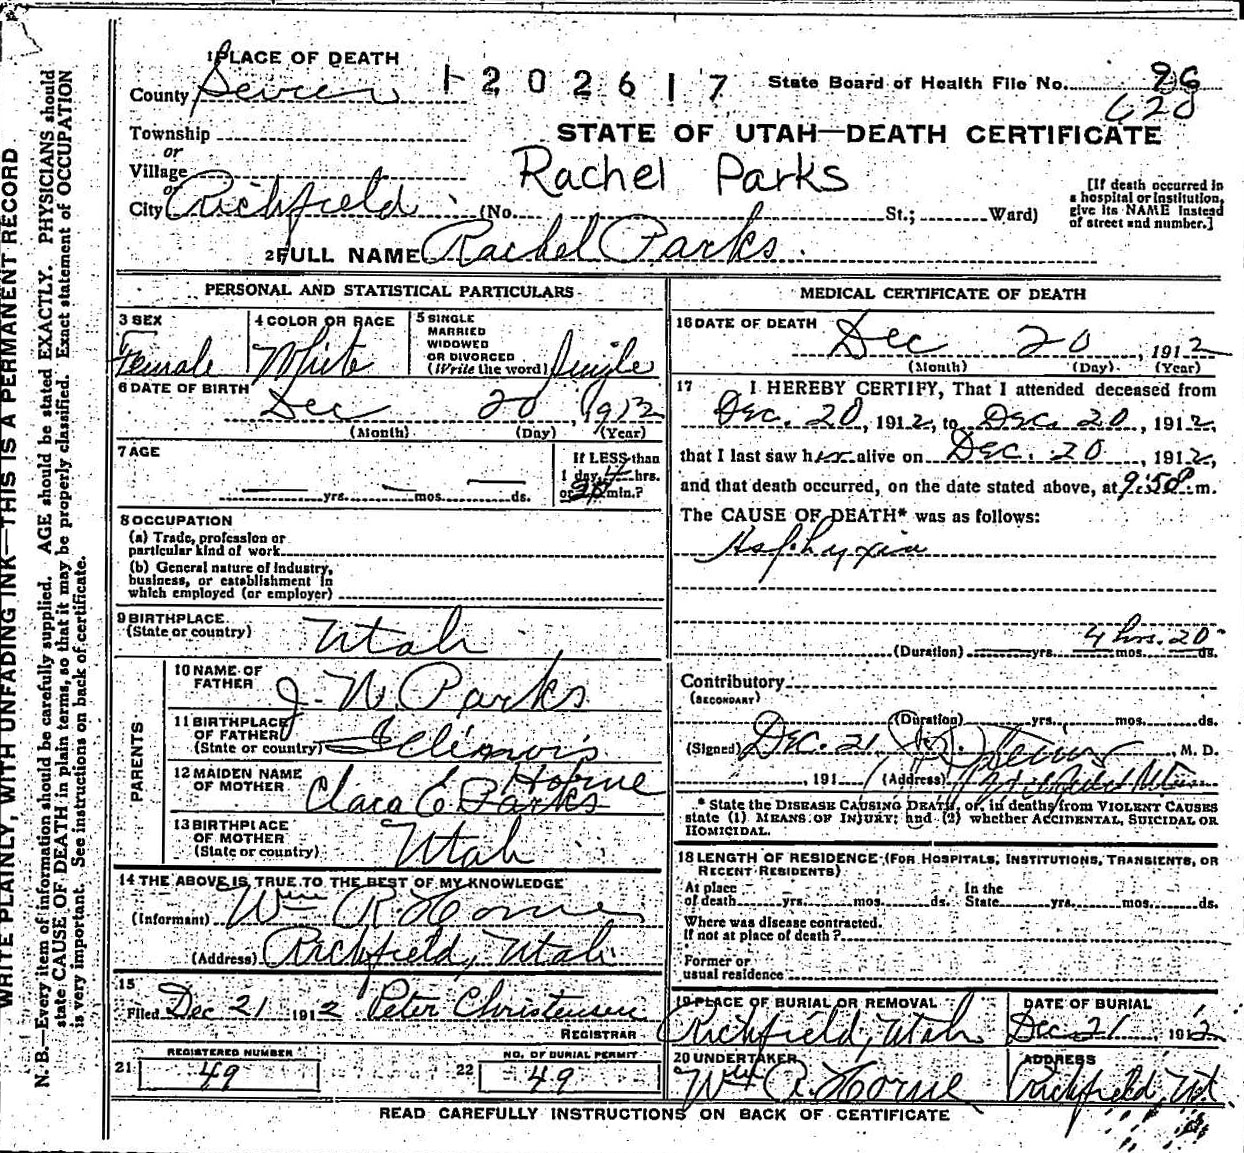 WRITE PLAINLY, WITH UNFADING INK—THIS IS A PERMANENT RECORD
N. B.—Every item of information should be carefully supplied. AGE should be stated EXACTLY. PHYSICIANS should
state CAUSE OF DEATH in plain terms, so that it may be properly classified. Exact statement of OCCUPATION
is very important. See instructions on back of certificate.
1 PLACE OF DEATH
County Sevier
1202617
State Board of Health File No. 96
628
Township
or
Village
or
City Richfield
STATE OF UTAH—DEATH CERTIFICATE
Rachel Parks
(No. St.; Ward)
[If death occurred in
a hospital or institution,
give its NAME instead
of street and number.]
2 FULL NAME Rachel Parks.
PERSONAL AND STATISTICAL PARTICULARS
3 SEX
Female
4 COLOR OR RACE
White
5 SINGLE
MARRIED
WIDOWED
OR DIVORCED
(Write the word) Single
6 DATE OF BIRTH
Dec 20, 1912
(Month) (Day) (Year)
7 AGE
yrs. mos. ds.
If LESS than
1 day, 4 hrs.
or 20 min.?
8 OCCUPATION
(a) Trade, profession or
particular kind of work
(b) General nature of industry,
business, or establishment in
which employed (or employer)
9 BIRTHPLACE
(State or country) Utah
PARENTS
10 NAME OF
FATHER J. W. Parks
11 BIRTHPLACE
OF FATHER
(State or country) Illinois
12 MAIDEN NAME
OF MOTHER Clara E Parks Horne
13 BIRTHPLACE
OF MOTHER
(State or country) Utah
14 THE ABOVE IS TRUE TO THE BEST OF MY KNOWLEDGE
(Informant) Wm R. Horne
(Address) Richfield, Utah
15
Filed Dec 21 1912 Peter Christensen
REGISTRAR
21 REGISTERED NUMBER
49
22 NO. OF BURIAL PERMIT
49
MEDICAL CERTIFICATE OF DEATH
16 DATE OF DEATH Dec 20, 1912
(Month) (Day) (Year)
17 I HEREBY CERTIFY, That I attended deceased from
Dec. 20, 1912, to Dec. 20, 1912,
that I last saw her alive on Dec. 20, 1912,
and that death occurred, on the date stated above, at 9:58 .m.
The CAUSE OF DEATH* was as follows:
Asphyxia
4 hrs. 20
(Duration) yrs. mos. ds.
Contributory
(SECONDARY)
(Duration) yrs. mos. ds.
(Signed) Dec. 21, M. D.
, 191 (Address)
* State the DISEASE CAUSING DEATH, or, in deaths from VIOLENT CAUSES
state (1) MEANS OF INJURY; and (2) whether ACCIDENTAL, SUICIDAL OR
HOMICIDAL.
18 LENGTH OF RESIDENCE (FOR HOSPITALS, INSTITUTIONS, TRANSIENTS, OR
RECENT RESIDENTS)
At place In the
of death yrs. mos. ds. State yrs. mos. ds.
Where was disease contracted.
If not at place of death?
Former or
usual residence
19 PLACE OF BURIAL OR REMOVAL
Richfield, Utah
DATE OF BURIAL
Dec 21, 1912
20 UNDERTAKER
Wm R. Horne
ADDRESS
Richfield, Ut.
READ CAREFULLY INSTRUCTIONS ON BACK OF CERTIFICATE